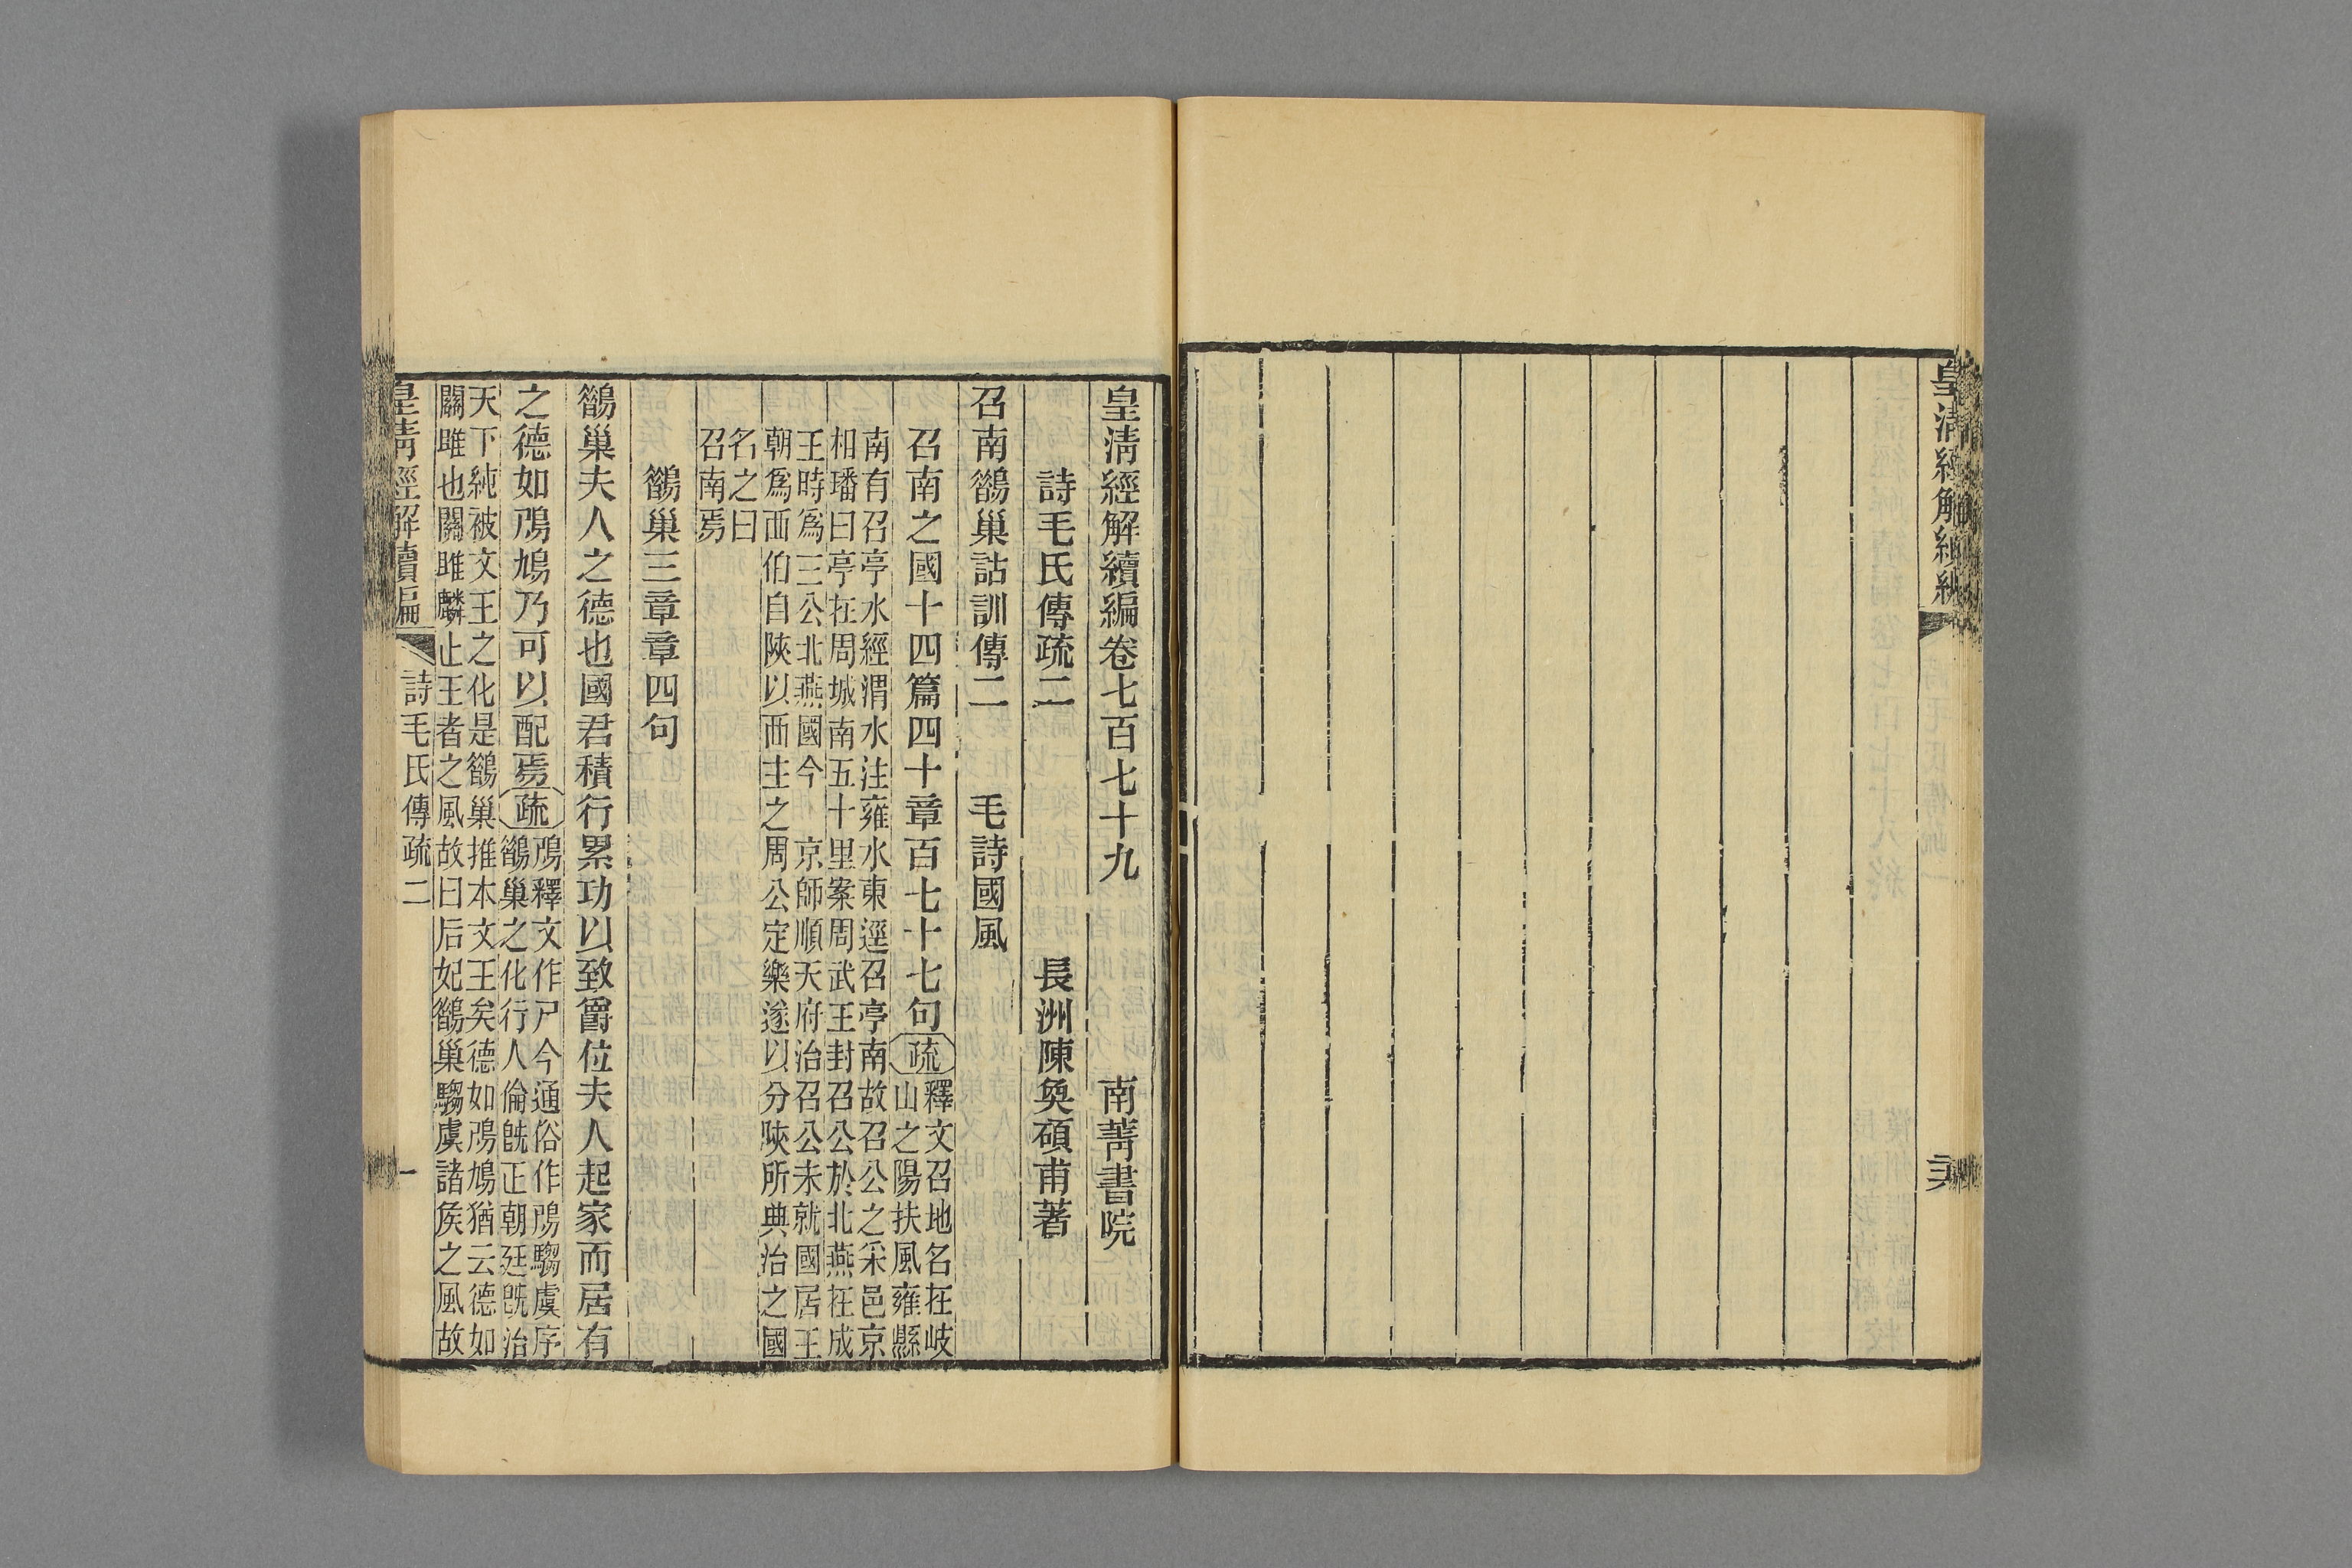 皇清經解續編卷七百七十九 南菁書院
詩毛氏傳疏二 長洲陳奐碩甫著
召南鵲巢詁訓傳二 毛詩國風
召南之國十四篇四十章百七十七句疏釋文召地名在岐
山之陽扶風雍縣
南有召亭水經渭水注雍水東逕召亭南故召公之采邑京
相璠曰亭在周城南五十里案周武王封召公於北燕在成
王時爲三公北燕國今 京師順天府治召公未就國居王
朝爲西伯自陝以西主之周公定樂遂以分陝所典治之國
名之曰
召南焉
鵲巢三章章四句
鵲巢夫人之德也國君積行累功以致爵位夫人起家而居有
之德如鳲鳩乃可以配焉疏鳲釋文作尸今通俗作鳲騶虞序
鵲巢之化行人倫旣正朝廷旣治
天下純被文王之化是鵲巢推本文王矣德如鳲鳩猶云德如
關雎也關雎麟止王者之風故曰后妃鵲巢騶虞諸侯之風故
皇清經解續編 詩毛氏傳疏二 一